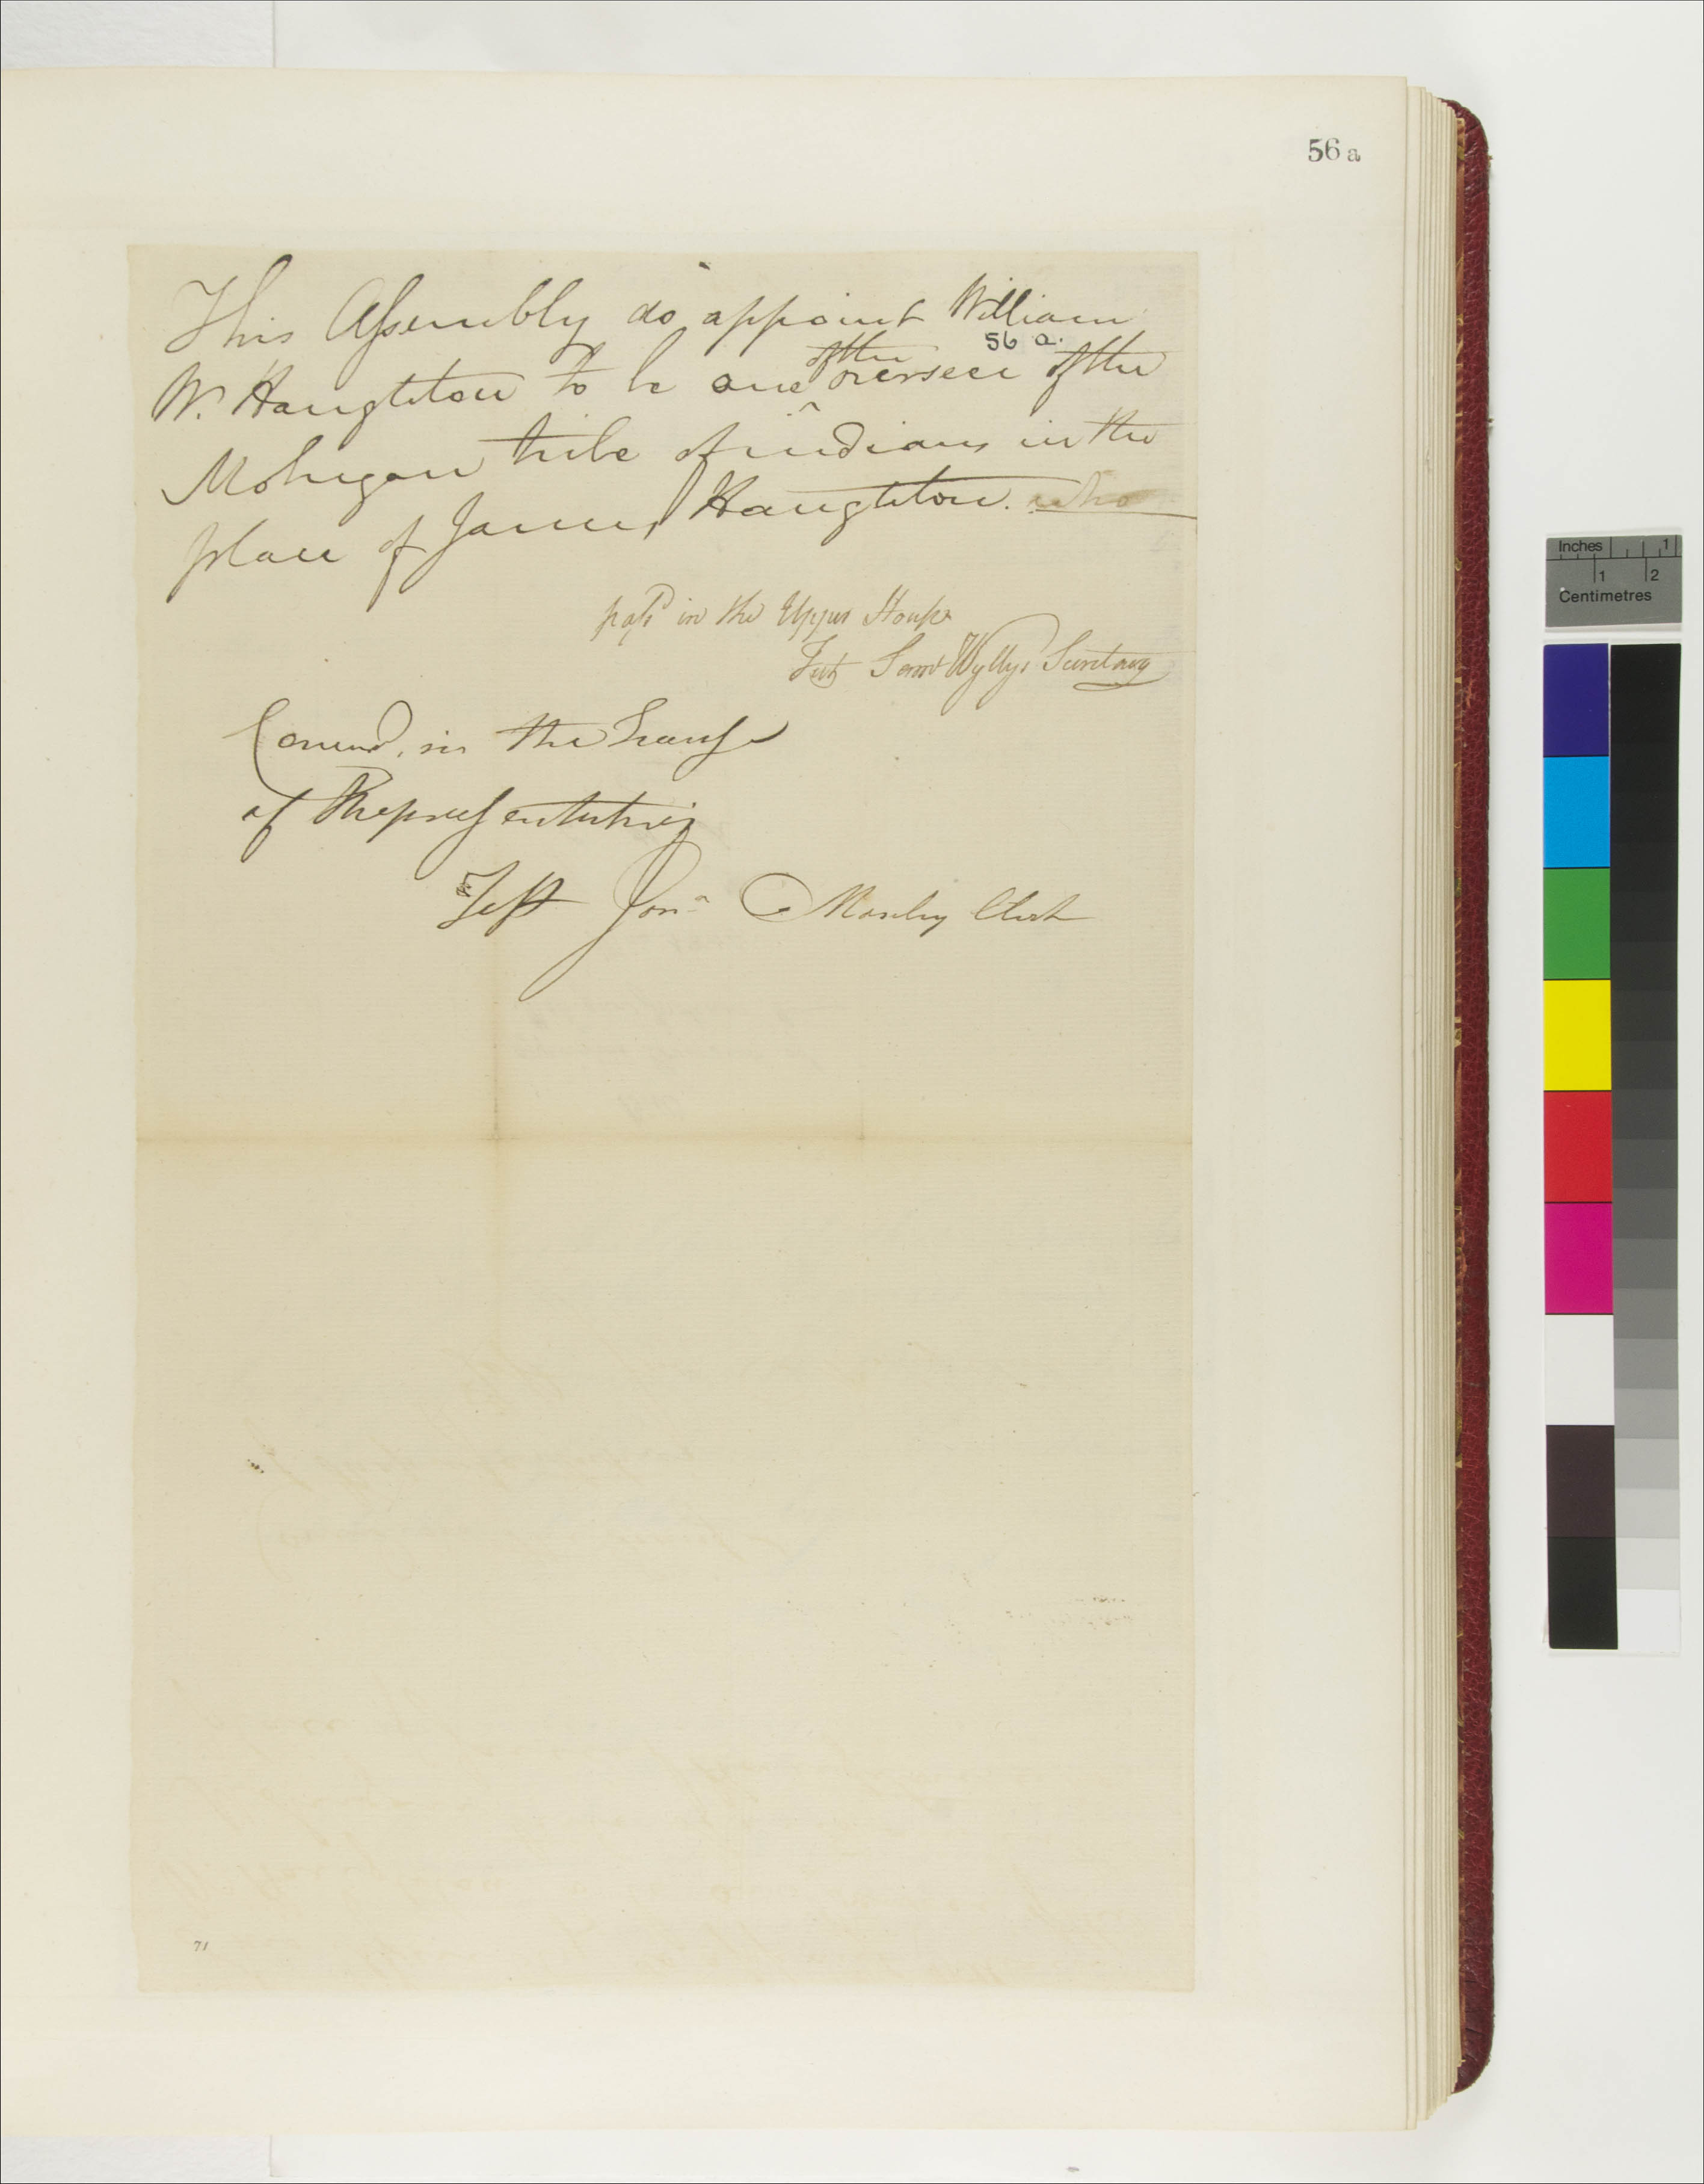 56 a
This Assembly do appoint William
56 a.
W. Haughton to be one of the overseer of the
Mohegan tribe of indians in the
place of James Haughton. who
passd in the Upper House
Test Saml Wyllys Secretary
Concurd. in the House
of Representatives
Test Jona O Mosely Clerk
71
Inches 1
1 2
Centimetres